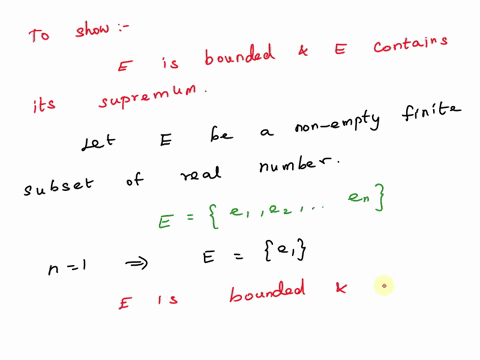 To show :-
E is bounded & E contains
its supremum.
Let E be a non-empty finite
subset of real number.
E = { e1, e2, ... en}
n=1 ⇒ E = {e1}
E is bounded &